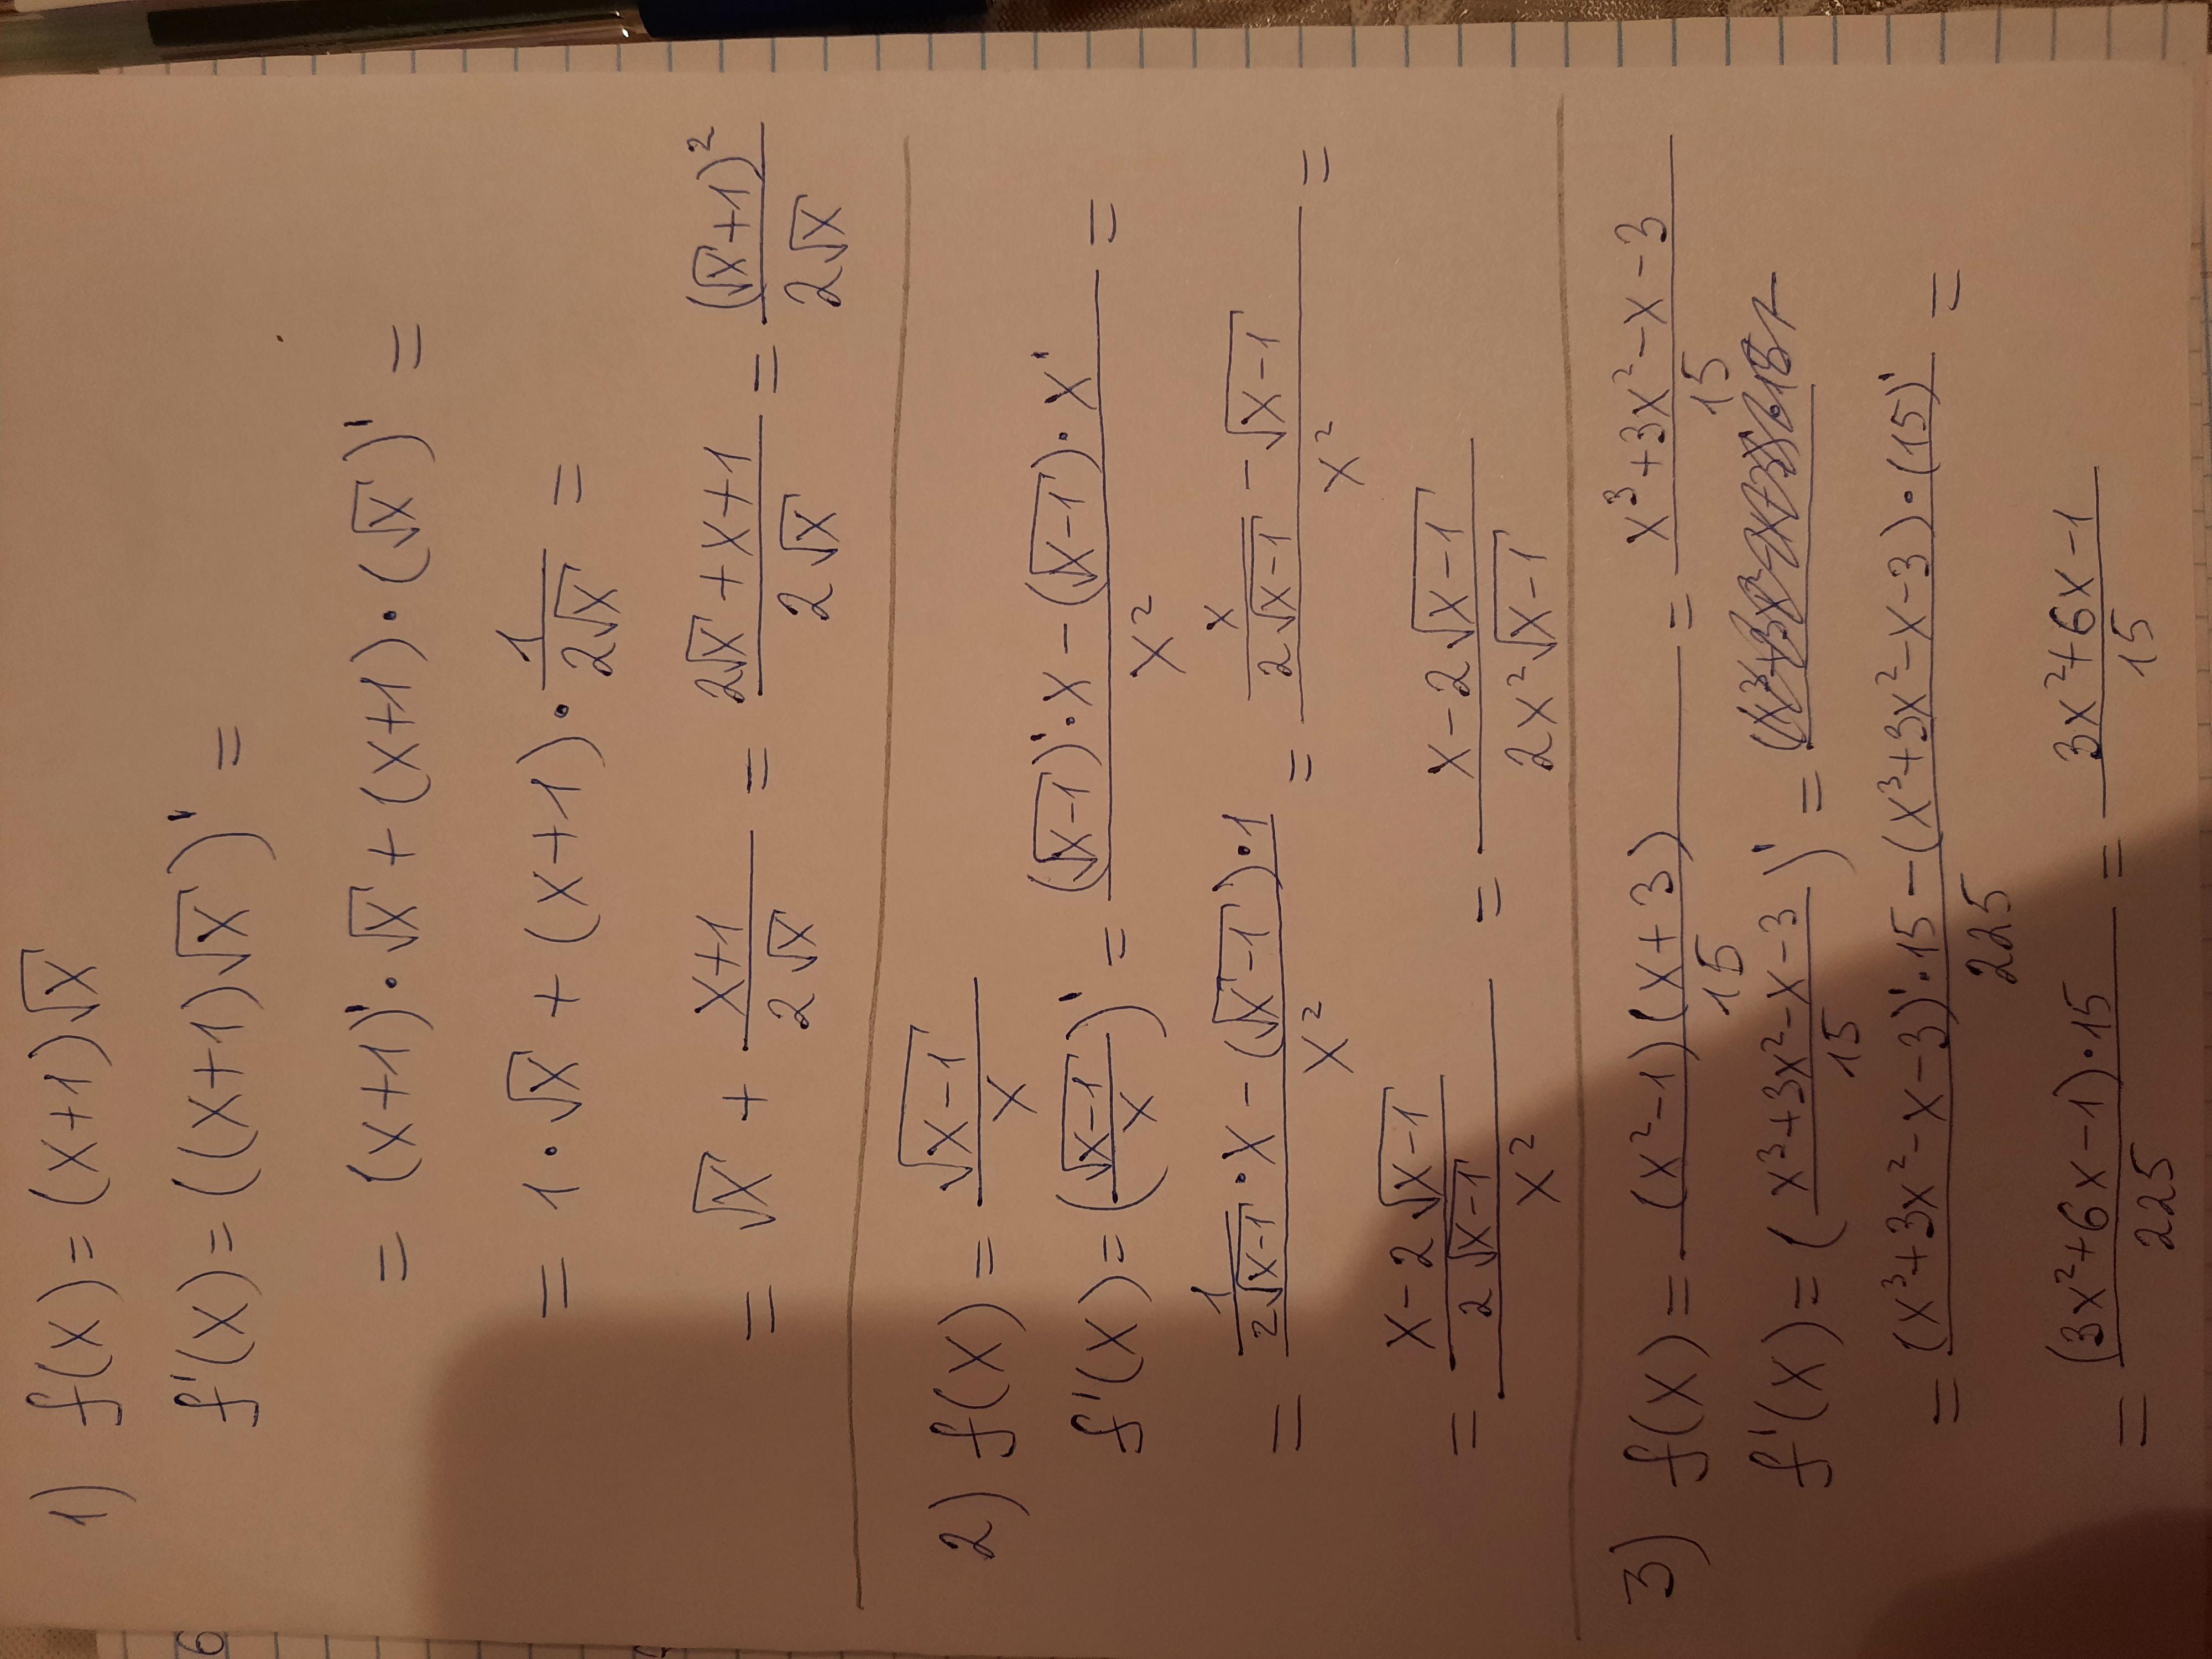 1) f(x) = (x+1)√x
f'(x) = ((x+1)√x)' =
= (x+1)'·√x + (x+1)·(√x)' =
= 1·√x + (x+1)·1/(2√x) =
= √x + (x+1)/(2√x) = (2√x+x+1)/(2√x) = (√x+1)²/(2√x)
2) f(x) = √(x-1)/x
f'(x) = (√(x-1)/x)' = ((√(x-1))'·x-(√(x-1))·x')/x² =
= (1/(2√(x-1))·x-(√(x-1))·1)/x² = (x/(2√(x-1))-√(x-1))/x² =
= ((x-2√(x-1))/(2√(x-1)))/x² = (x-2√(x-1))/(2x²√(x-1))
3) f(x) = (x²-1)(x+3)/15 = (x³+3x²-x-3)/15
f'(x) = ((x³+3x²-x-3)/15)' =
= ((x³+3x²-x-3)'·15-(x³+3x²-x-3)·(15)')/225 =
= ((3x²+6x-1)·15)/225 = (3x²+6x-1)/15
6